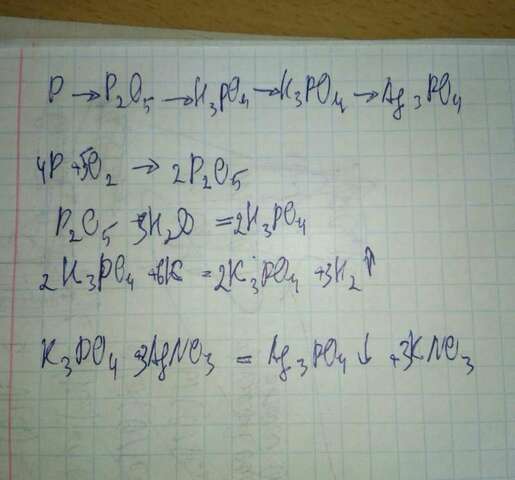 P → P₂O₅ → H₃PO₄ → K₃PO₄ → Ag₃PO₄
4P + 5O₂ → 2P₂O₅
P₂O₅ + 3H₂O = 2H₃PO₄
2H₃PO₄ + 6K = 2K₃PO₄ + 3H₂↑
K₃PO₄ + 3AgNO₃ = Ag₃PO₄↓ + 3KNO₃